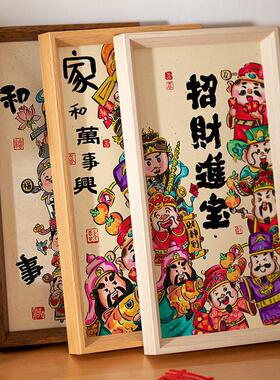 和
事
家
和
萬
事
興
招
財
進
寶